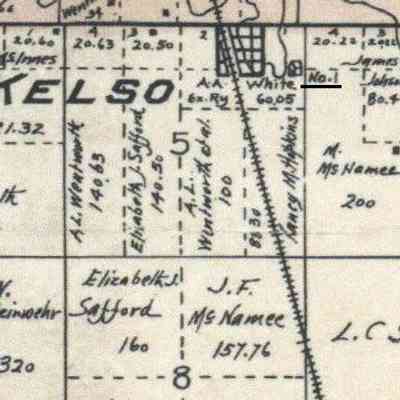 Wentw
34
20.60
4
20.63
3
20.50
2
4
20.22
3
McInnes
James
KELSO
A.A. White
Ex. Ry 60.05
No.1
80.4
1.32
5
A.L. Wentworth
140.63
Elizabeth J. Safford
140.50
A.L.
Wentworth et al.
100
86.30
Nancy M. Hopkins
M.
McNamee
200
lk
Elizabeth J.
Safford
160
J.F.
McNamee
157.76
W.
einwehr
320
L.C
8